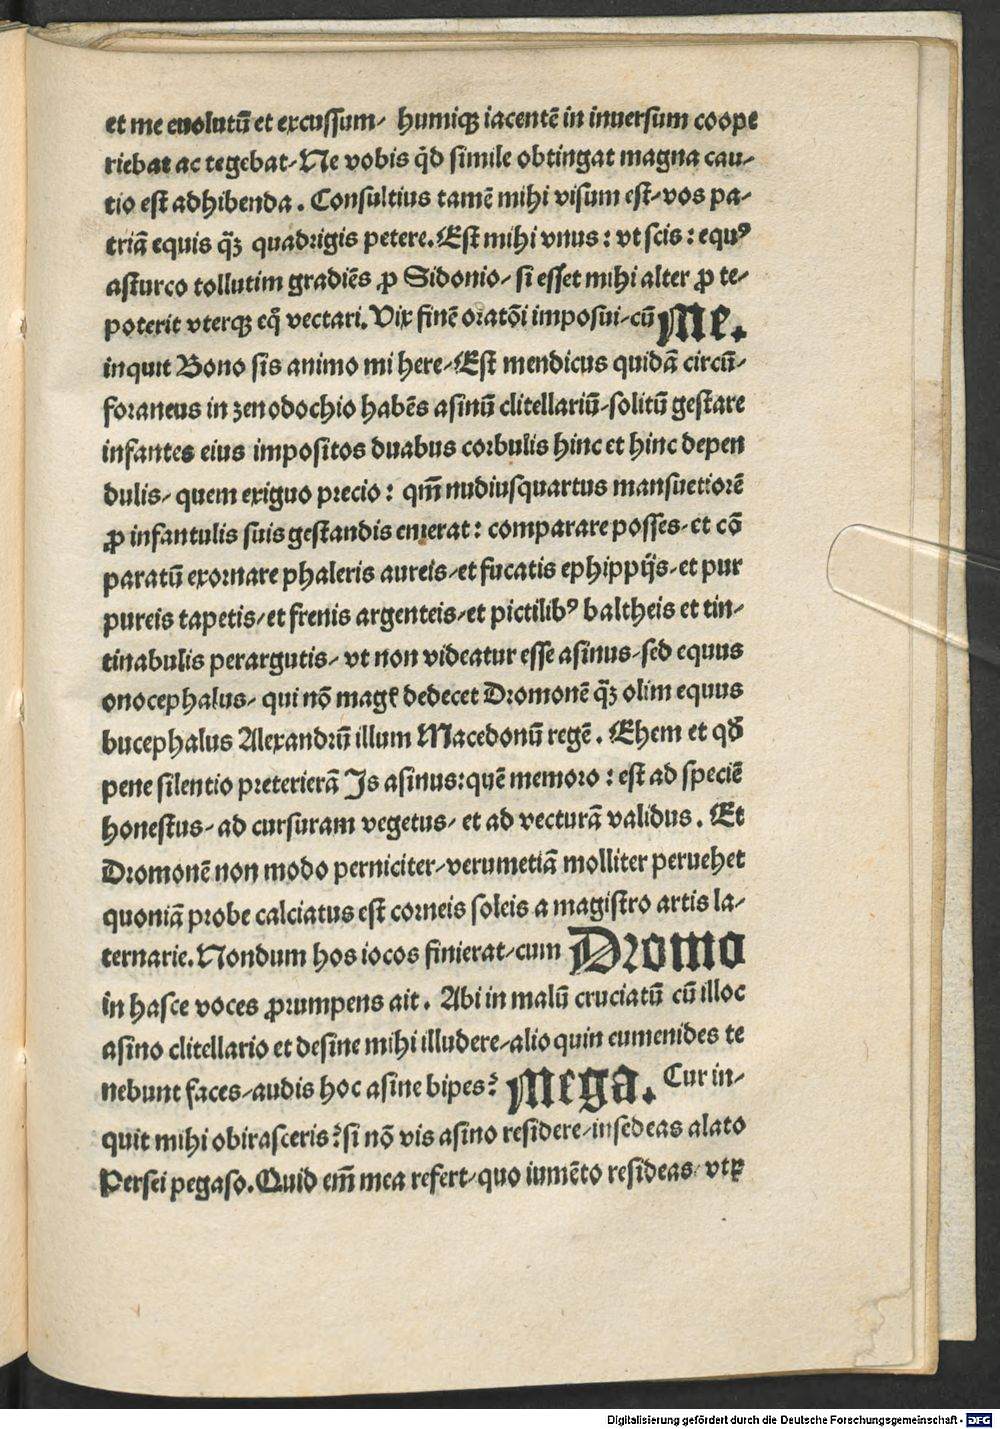 et me euolutū et excussum/ humiqꝫ iacentē in inuersum coope
riebat ac tegebat/Ne vobis qͥd simile obtingat magna cau/
tio est adhibenda. Consultius tamē mihi visum est/vos pa/
triā equis qͣꝫ quadrigis petere.Est mihi vnus: vt scis: equꝰ
asturco tollutim gradiēs ꝓ Sidonio/ si esset mihi alter ꝓ te/
poterit vterqꝫ eq̄ vectari.Vix finē oratōi imposui/cū Me.
inquit Bono sis animo mi here/Est mendicus quidā circū/
foraneus in zenodochio habēs asinū clitellariū/solitū gestare
infantes eius impositos duabus corbulis hinc et hinc depen
dulis/ quem exiguo precio: qm̄ nudiusquartus mansuetiorē
ꝓ infantulis suis gestandis emerat: comparare posses/et cō
paratū exornare phaleris aureis/et fucatis ephippijs/et pur
pureis tapetis/et frenis argenteis/et pictilibꝰ baltheis et tin/
tinabulis perargutis/ vt non videatur esse asinus/sed equus
onocephalus/ qui nō magꝭ dedecet Dromonē qͣꝫ olim equus
bucephalus Alexandrū illum Macedonū regē. Ehem et qđ
pene silentio preterierā Is asinus:quē memoro: est ad speciē
honestus/ ad cursuram vegetus/ et ad vecturā validus. Et
Dromonē non modo perniciter/verumetiā molliter peruehet
quoniā probe calciatus est corneis soleis a magistro artis la/
ternarie.Nondum hos iocos finierat/cum Dromo
in hasce voces ꝓrumpens ait. Abi in malū cruciatū cū illoc
asino clitellario et desine mihi illudere/alio quin eumenides te
nebunt faces/audis hoc asine bipes? Mega. Cur in/
quit mihi obirasceris?si nō vis asino residere/insedeas alato
Persei pegaso.Quid em̄ mea refert/quo iumēto resideas/vtꝝ
Digitalisierung gefördert durch die Deutsche Forschungsgemeinschaft - DFG